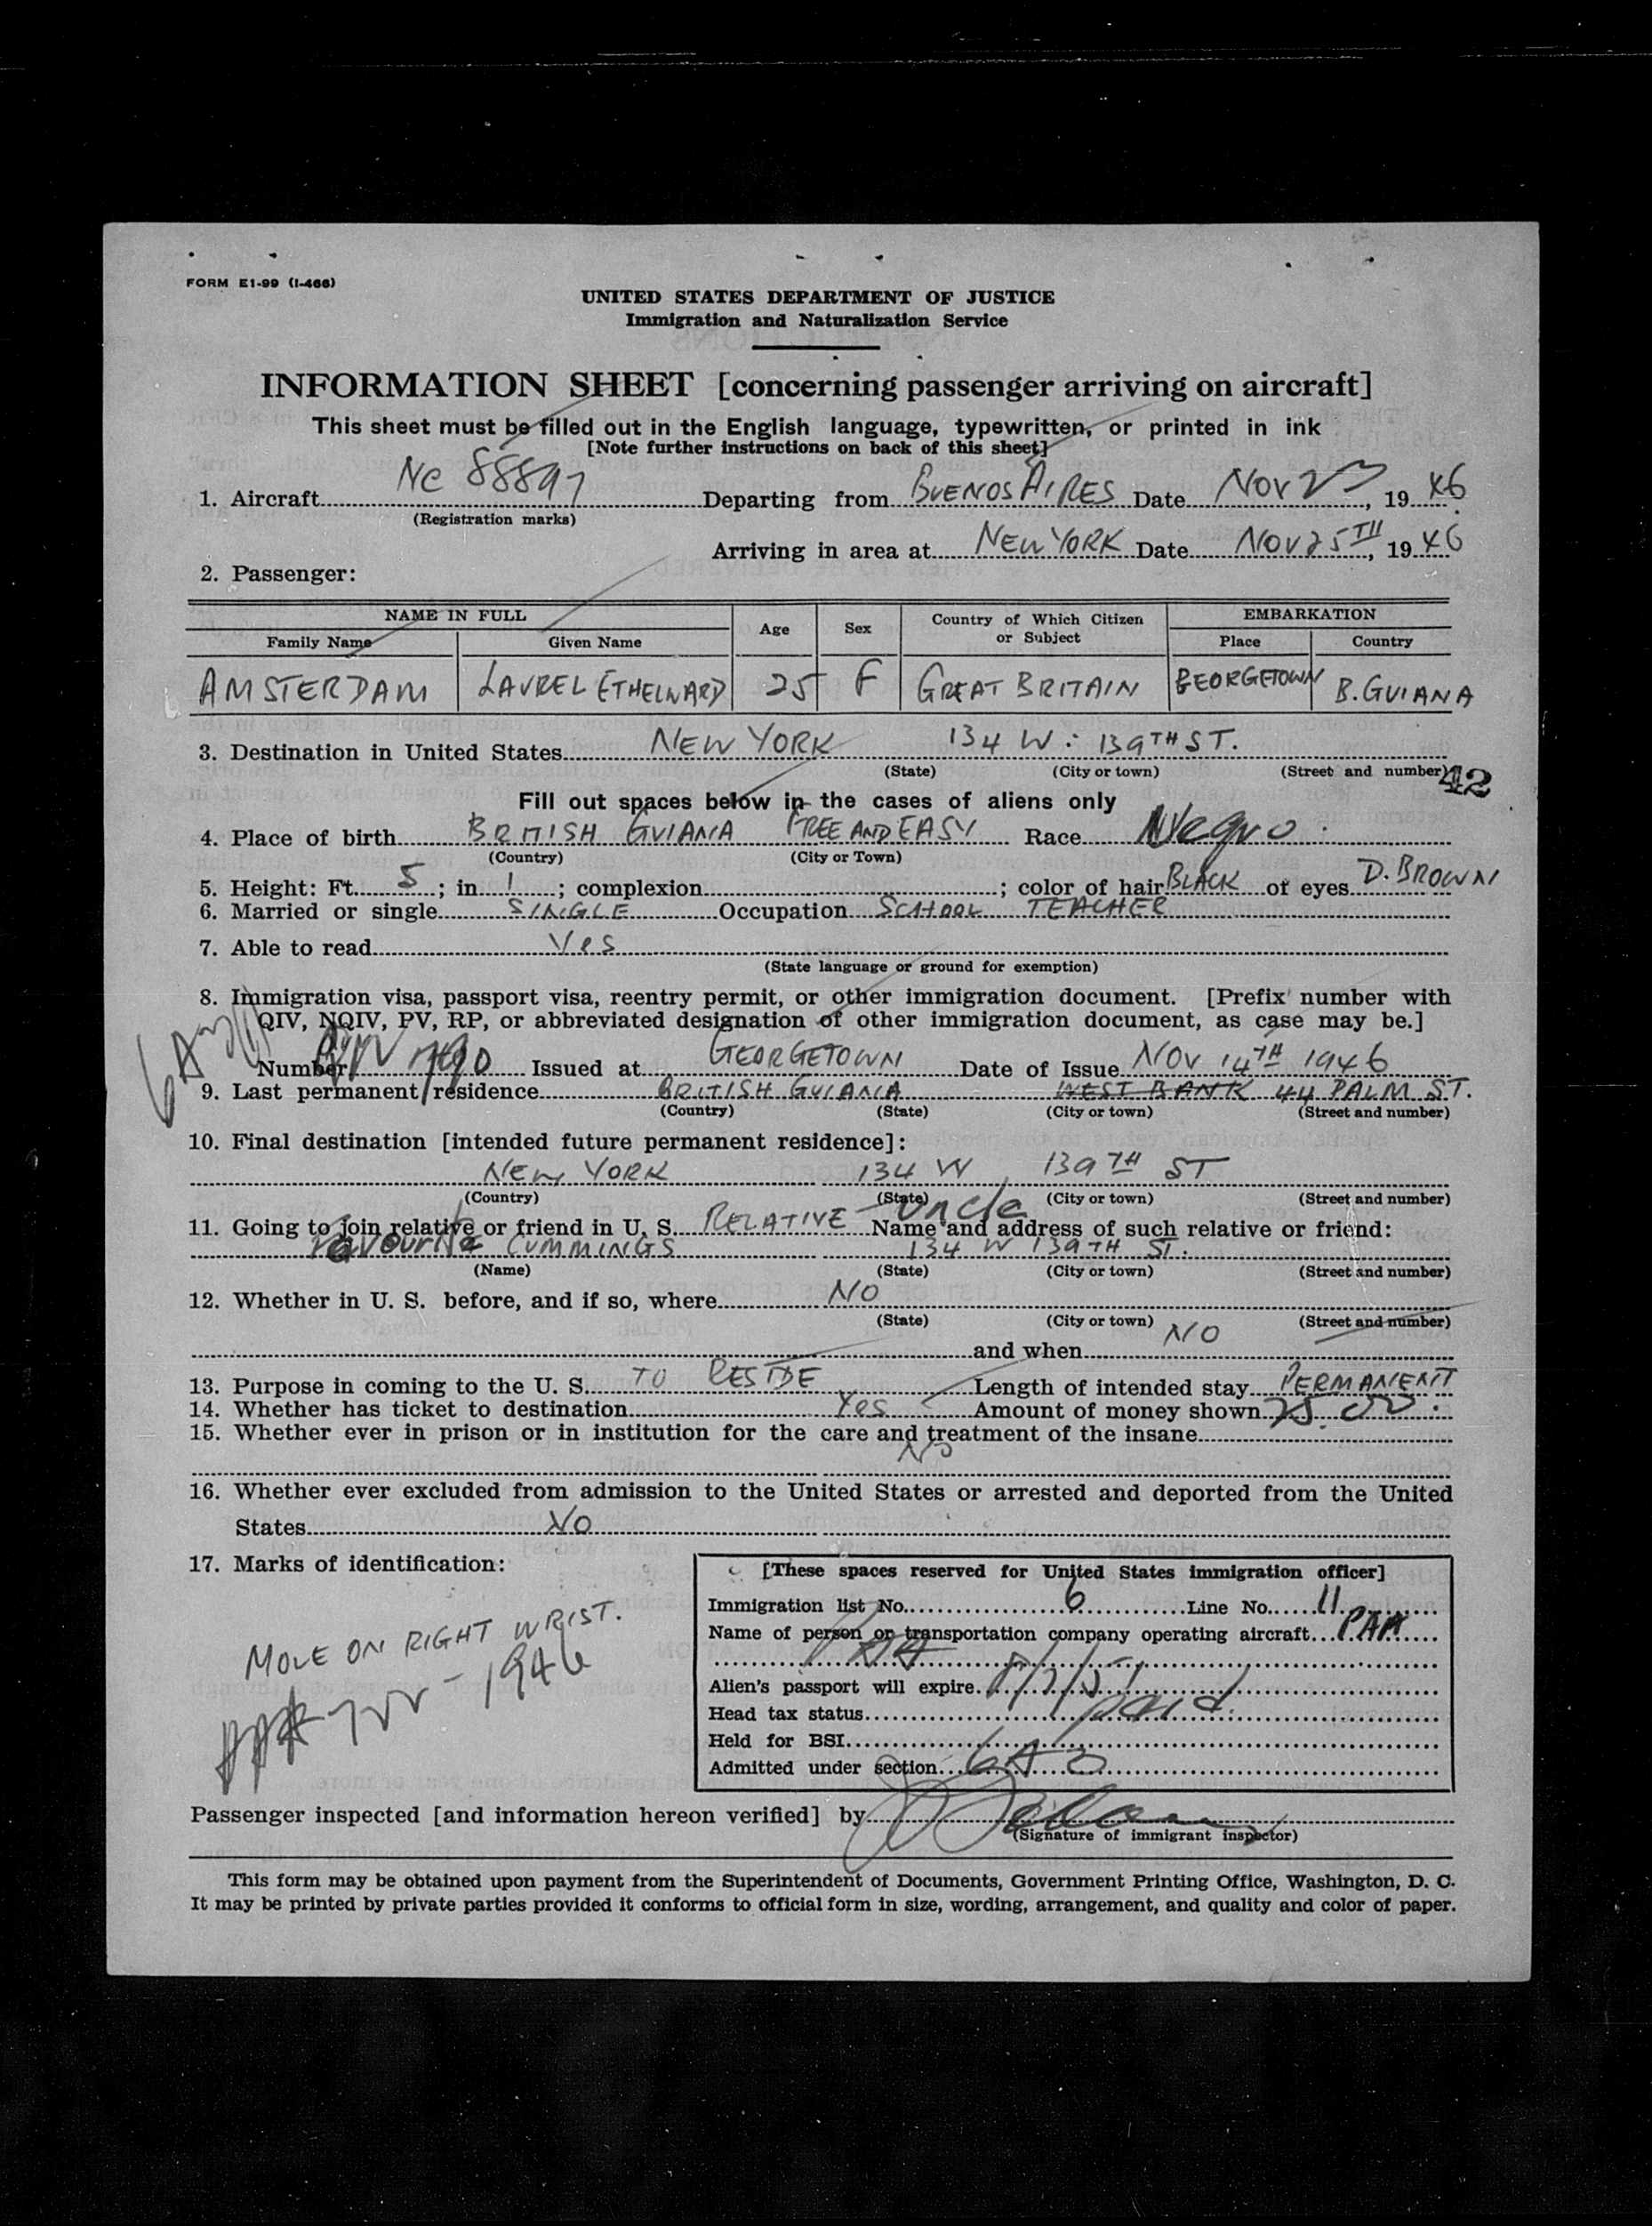 FORM E1-99 (I-466)
UNITED STATES DEPARTMENT OF JUSTICE
Immigration and Naturalization Service
INFORMATION SHEET [concerning passenger arriving on aircraft]
This sheet must be filled out in the English language, typewritten, or printed in ink
[Note further instructions on back of this sheet]
1. Aircraft NC 88897 Departing from BUENOS AIRES Date NOV 23, 19 46
(Registration marks)
Arriving in area at NEW YORK Date NOV 25TH, 19 46
2. Passenger:
NAME IN FULL Age Sex Country of Which Citizen or Subject EMBARKATION
Family Name Given Name Place Country
AMSTERDAM LAUREL ETHELWARD 25 F GREAT BRITAIN GEORGETOWN B. GUIANA
3. Destination in United States NEW YORK 134 W: 139TH ST.
(State) (City or town) (Street and number)
42
Fill out spaces below in the cases of aliens only
4. Place of birth BRITISH GUIANA FREE AND EASY Race Negro
(Country) (City or Town)
5. Height: Ft. 5; in 1; complexion; color of hair BLACK of eyes D. BROWN
6. Married or single SINGLE Occupation SCHOOL TEACHER
7. Able to read Yes
(State language or ground for exemption)
8. Immigration visa, passport visa, reentry permit, or other immigration document. [Prefix number with
QIV, NQIV, PV, RP, or abbreviated designation of other immigration document, as case may be.]
Number Issued at GEORGETOWN Date of Issue NOV 14TH 1946
9. Last permanent residence BRITISH GUIANA WEST BANK 44 PALM ST.
(Country) (State) (City or town) (Street and number)
10. Final destination [intended future permanent residence]:
NEW YORK 134 W 139TH ST
(Country) (State) (City or town) (Street and number)
11. Going to join relative or friend in U. S. RELATIVE - Uncle Name and address of such relative or friend:
Favourite CUMMINGS 134 W 139TH ST.
(Name) (State) (City or town) (Street and number)
12. Whether in U. S. before, and if so, where NO
(State) (City or town) (Street and number)
and when NO
13. Purpose in coming to the U. S. TO RESIDE Length of intended stay PERMANENT
14. Whether has ticket to destination Yes Amount of money shown 25.00
15. Whether ever in prison or in institution for the care and treatment of the insane
NO
16. Whether ever excluded from admission to the United States or arrested and deported from the United
States NO
17. Marks of identification:
MOLE ON RIGHT WRIST.
1946
[These spaces reserved for United States immigration officer]
Immigration list No. 6 Line No. 11
Name of person or transportation company operating aircraft PAA
Alien's passport will expire
Head tax status paid
Held for BSI
Admitted under section 6A3
Passenger inspected [and information hereon verified] by
(Signature of immigrant inspector)
This form may be obtained upon payment from the Superintendent of Documents, Government Printing Office, Washington, D. C.
It may be printed by private parties provided it conforms to official form in size, wording, arrangement, and quality and color of paper.